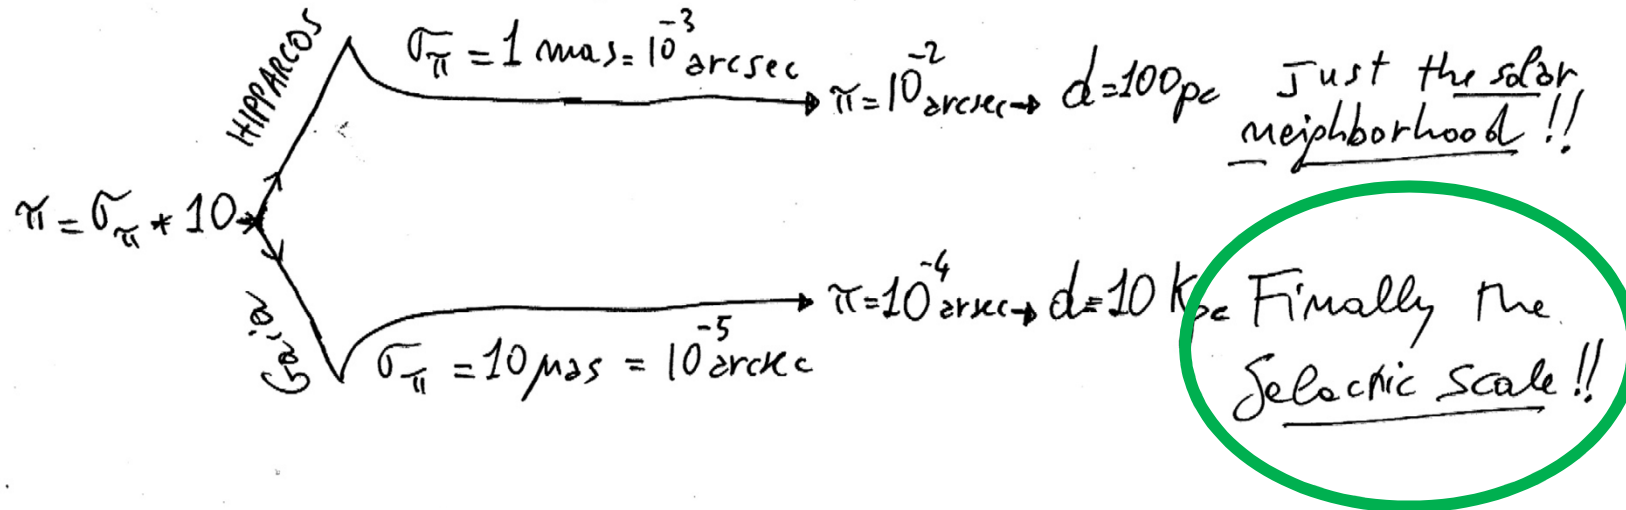 HIPPARCOS
σπ = 1 mas = 10⁻³ arcsec
π = 10⁻² arcsec → d = 100 pc
Just the solar
neighborhood !!
π = σπ * 10
Gaia
σπ = 10 μas = 10⁻⁵ arcsec
π = 10⁻⁴ arsec → d = 10 Kpc
Finally the
Galactic scale !!